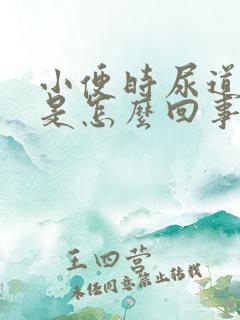 小便时尿道
是怎麽回事
王四营
未经同意禁止转载